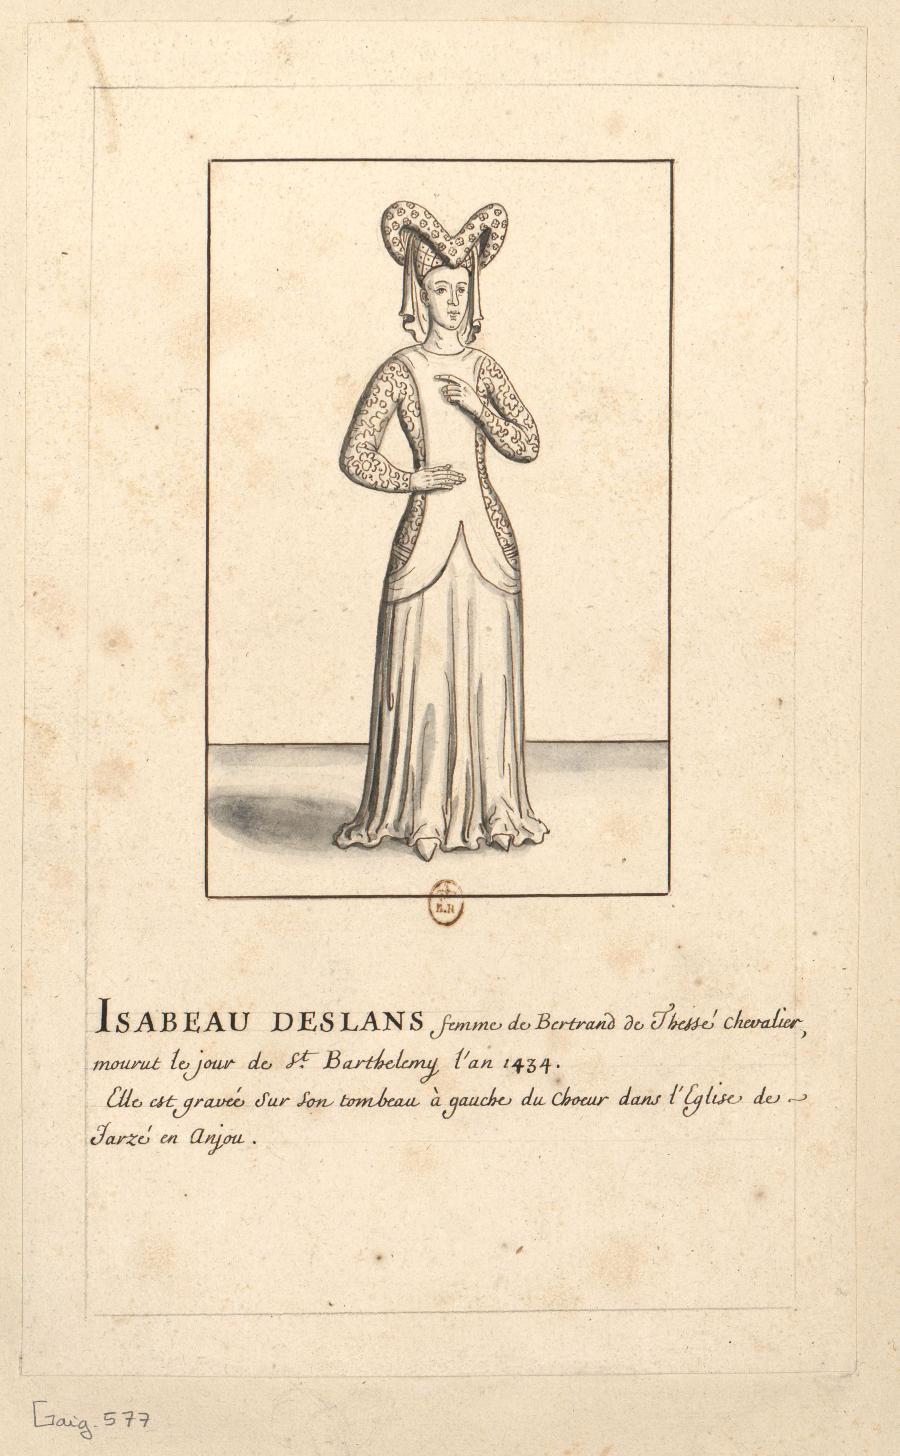 B.R
ISABEAU DESLANS femme de Bertrand de Thessé chevalier,
mourut le jour de St. Barthelemy l'an 1434.
Elle est gravée sur son tombeau à gauche du Choeur dans l'Eglise de
Jarzé en Anjou.
Gaig. 577